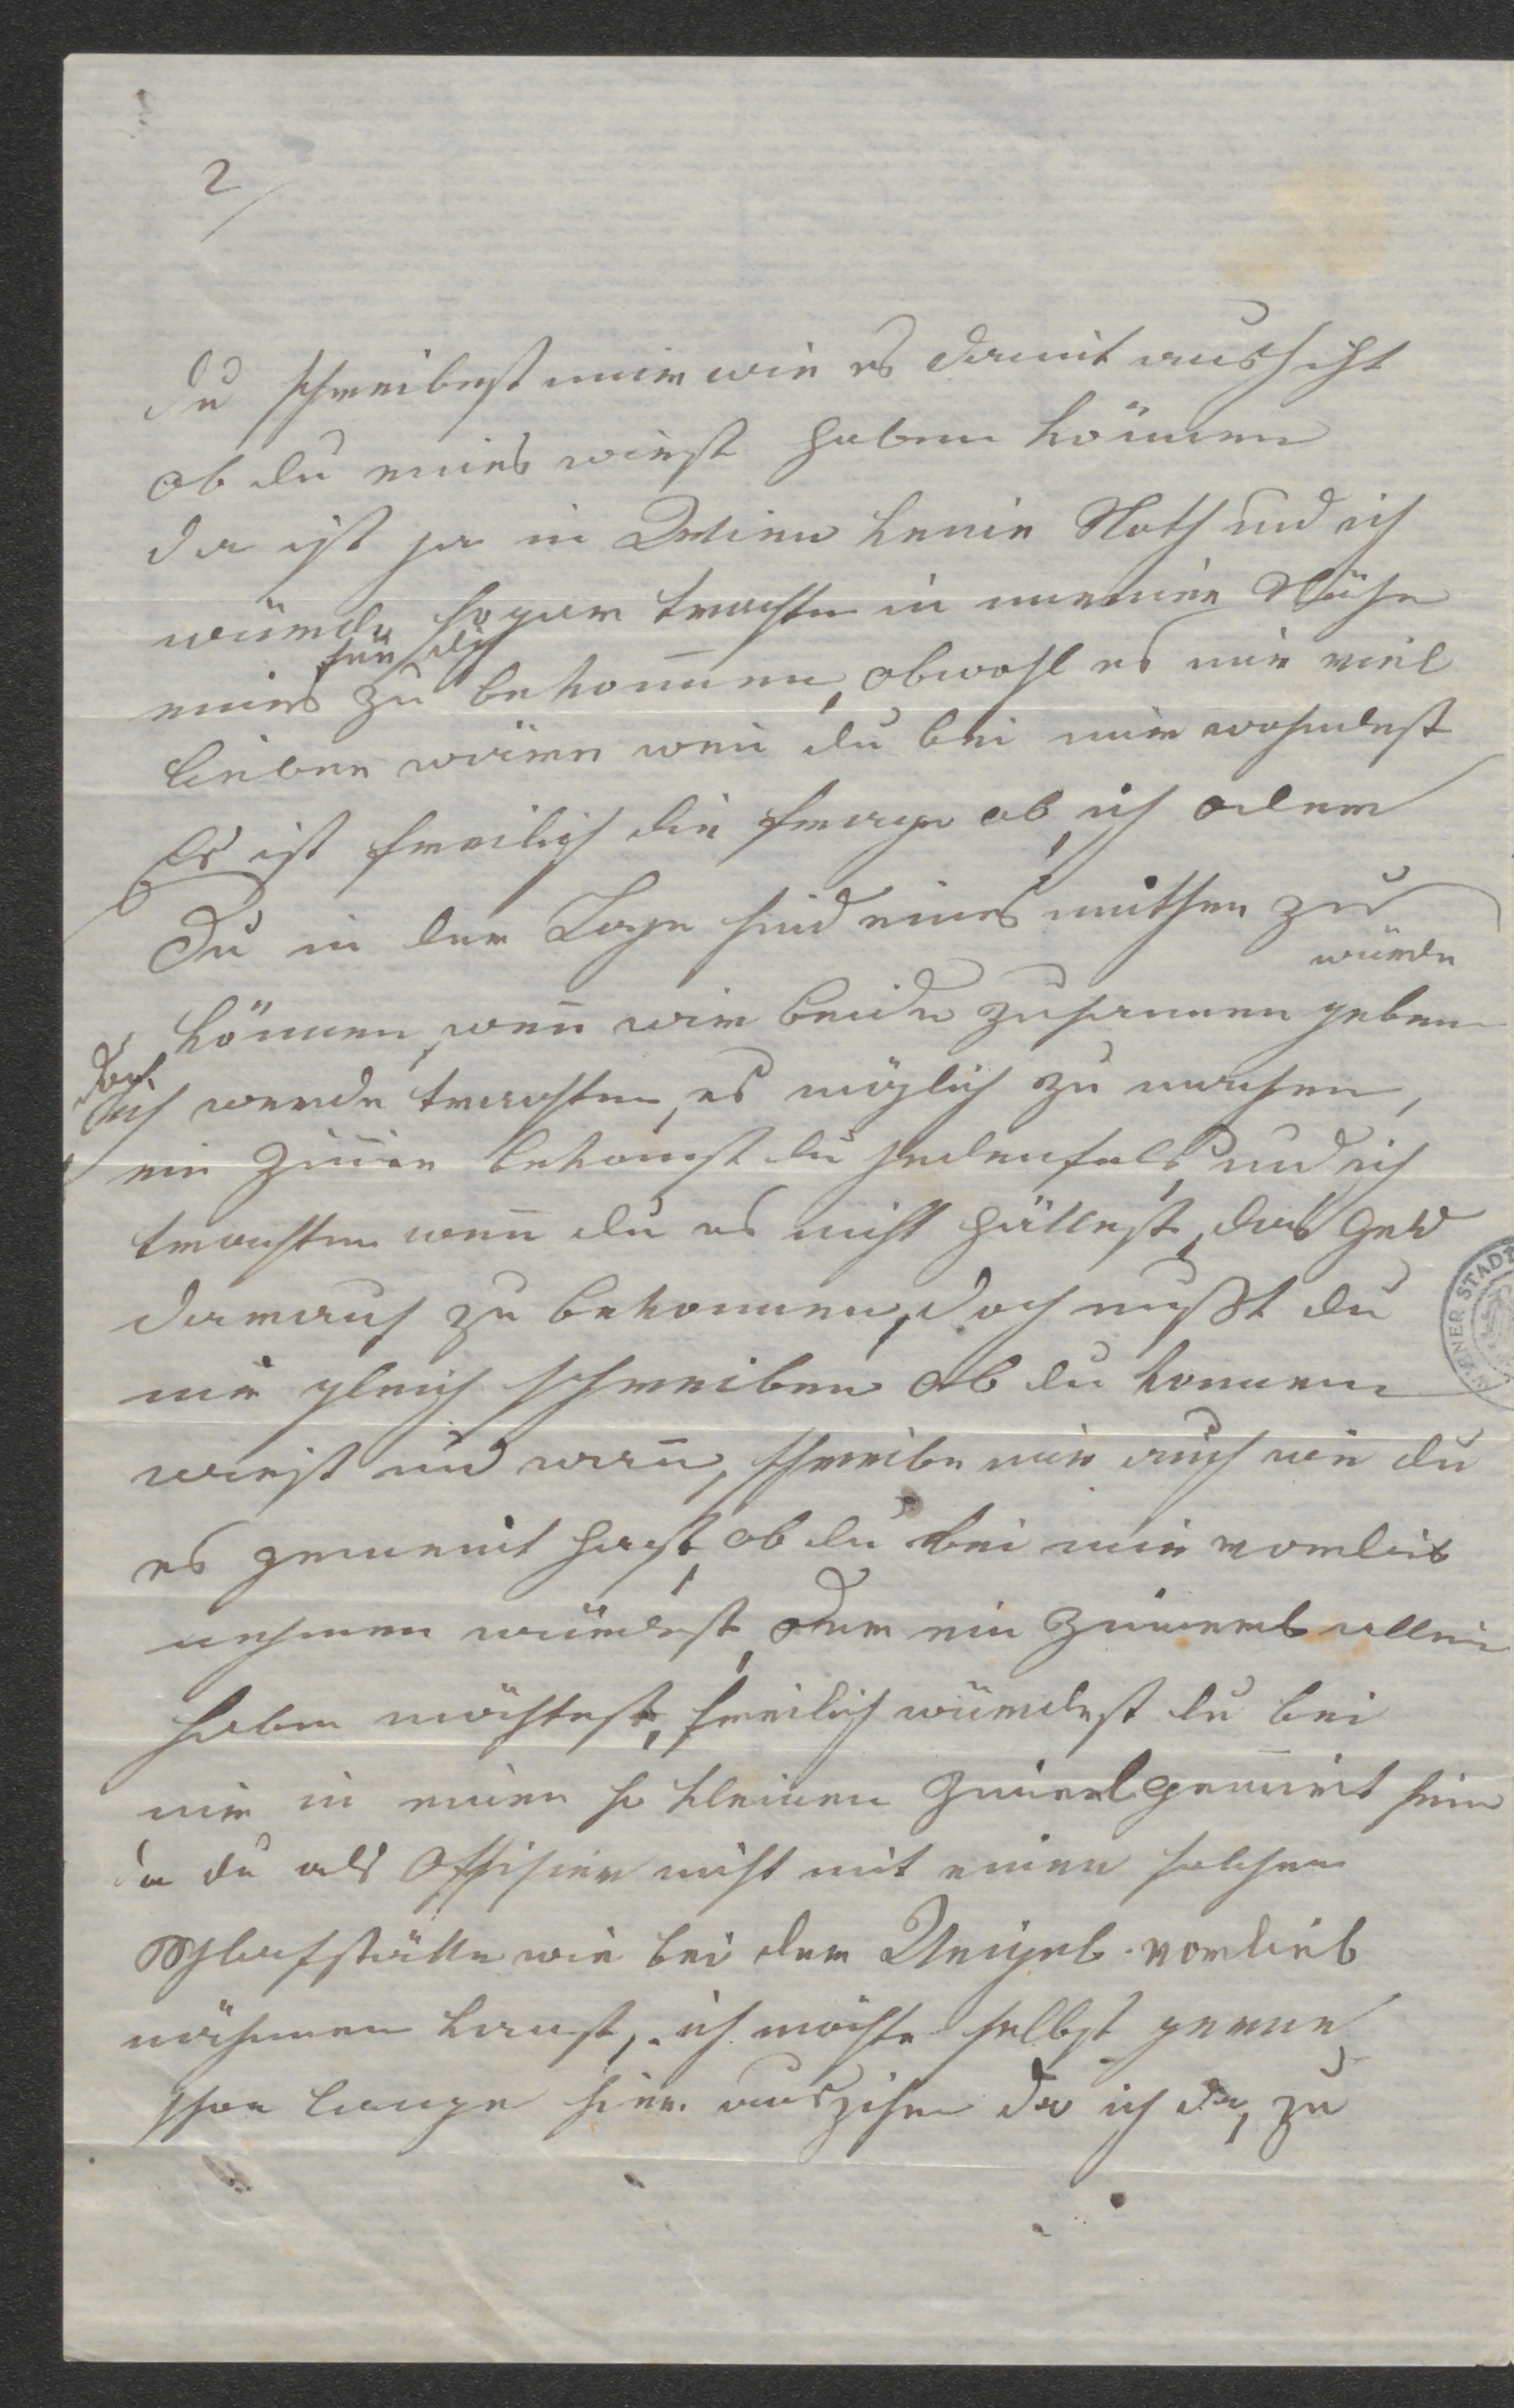 2/
du schreibest mir wie es damit aussiht
ob du eines wirst haben können
da ist ja in Wien keine Noth und ich
würde sogar trachten in meiner Nähe
für dich
eines zu bekom̄en, obwohl es mir viel
lieber wäre wen̄ du bei mir wohndest
Es ist freilich die frage ob ich oder
Du in der Lage sind eines mithen zu
würde
können, wen̄ wir beide zusammen geben
Doch
ich werde trachten, es möglich zu machen,
ein Zim̄er bekomst du jedenfals, und ich
trachten wen̄ du es nicht hättest, das Geld
darauf zu bekommen, doch mußt du
mir gleich schreiben ob du kommen
wirst und wan̄, schreibe mir auch wie du
es gemeint hast, ob du bei mir vorlieb
nehmen würdest, oder ein Zimmerl allein
haben möchtest, freilich würdest du bei
mir in einen so kleinen Zimerl genirt sein
da du als Offisier nicht mit einen solchen
Schlafstätte wie bei der vorlieb
nähmen kanst, ich möchte selbst gerne
schon lange hier auszihen da ich da, zu
WIENER STADT